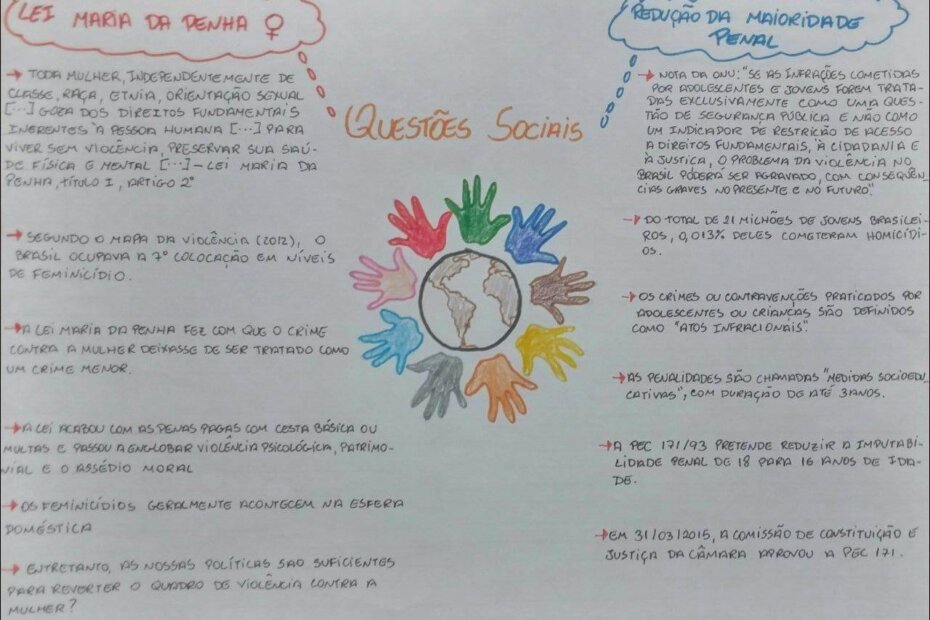 LEI MARIA DA PENHA ♀
→ TODA MULHER, INDEPENDENTEMENTE DE
CLASSE, RAÇA, ETNIA, ORIENTAÇÃO SEXUAL
[...] GOZA DOS DIREITOS FUNDAMENTAIS
INERENTES À PESSOA HUMANA [...] PARA
VIVER SEM VIOLÊNCIA, PRESERVAR SUA SAÚ-
DE FÍSICA E MENTAL [...] - LEI MARIA DA
PENHA, TÍTULO I, ARTIGO 2º
→ SEGUNDO O MAPA DA VIOLÊNCIA (2012), O
BRASIL OCUPAVA A 7º COLOCAÇÃO EM NÍVEIS
DE FEMINICÍDIO.
→ A LEI MARIA DA PENHA FEZ COM QUE O CRIME
CONTRA A MULHER DEIXASSE DE SER TRATADO COMO
UM CRIME MENOR.
→ A LEI ACABOU COM AS PENAS PAGAS COM CESTA BÁSICA OU
MULTAS E PASSOU A ENGLOBAR VIOLÊNCIA PSICOLÓGICA, PATRIMO-
NIAL E O ASSÉDIO MORAL
→ OS FEMINICÍDIOS GERALMENTE ACONTECEM NA ESFERA
DOMÉSTICA
→ ENTRETANTO, AS NOSSAS POLÍTICAS SAO SUFICIENTES
PARA REVERTER O QUADRO DE VIOLÊNCIA CONTRA A
MULHER?
QUESTÕES SOCIAIS
REDUÇÃO DA MAIORIDADE
PENAL
→ NOTA DA ONU: "SE AS INFRAÇÕES COMETIDAS
POR ADOLESCENTES E JOVENS FOREM TRATA-
DAS EXCLUSIVAMENTE COMO UMA QUES-
TÃO DE SEGURANÇA PÚBLICA E NÃO COMO
UM INDICADOR DE RESTRIÇÃO DE ACESSO
A DIREITOS FUNDAMENTAIS, À CIDADANIA E
À JUSTIÇA, O PROBLEMA DA VIOLÊNCIA NO
BRASIL PODERÁ SER AGRAVADO, COM CONSEQUÊN-
CIAS GRAVES NO PRESENTE E NO FUTURO".
→ DO TOTAL DE 21 MILHÕES DE JOVENS BRASILEI-
ROS, 0,013% DELES COMETERAM HOMICÍDI-
OS.
→ OS CRIMES OU CONTRAVENÇÕES PRATICADOS POR
ADOLESCENTES OU CRIANÇAS SÃO DEFINIDOS
COMO "ATOS INFRACIONAIS".
→ AS PENALIDADES SÃO CHAMADAS "MEDIDAS SOCIOEDU-
CATIVAS", COM DURAÇÃO DE ATÉ 3 ANOS.
→ A PEC 171/93 PRETENDE REDUZIR A IMPUTABI-
LIDADE PENAL DE 18 PARA 16 ANOS DE IDA-
DE.
→ EM 31/03/2015, A COMISSÃO DE CONSTITUIÇÃO E
JUSTIÇA DA CÂMARA APROVOU A PEC 171.